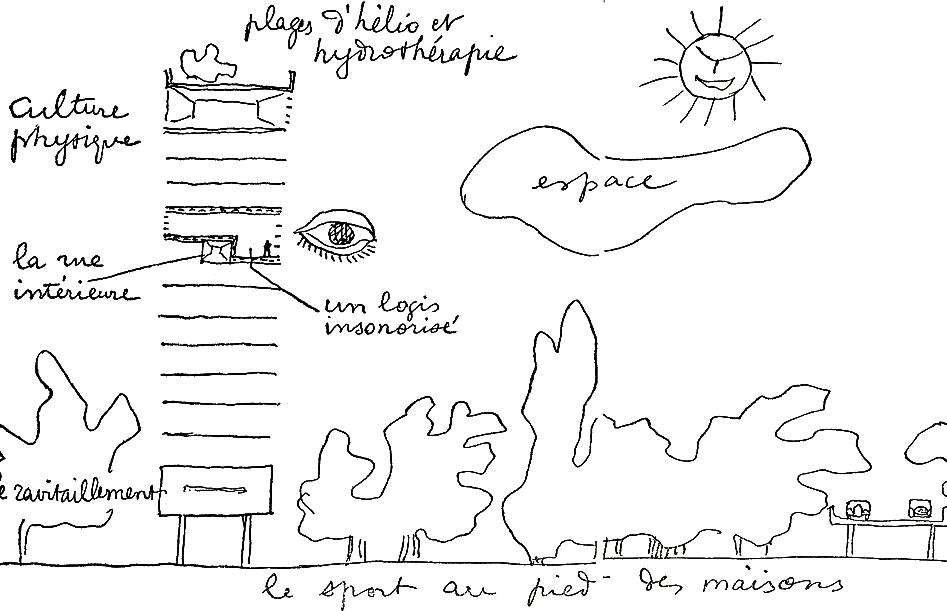 plages d'hélio et
hydrothérapie
culture
physique
espace
la rue
intérieure
un logis
insonorisé
ravitaillement
le sport au pied des maisons